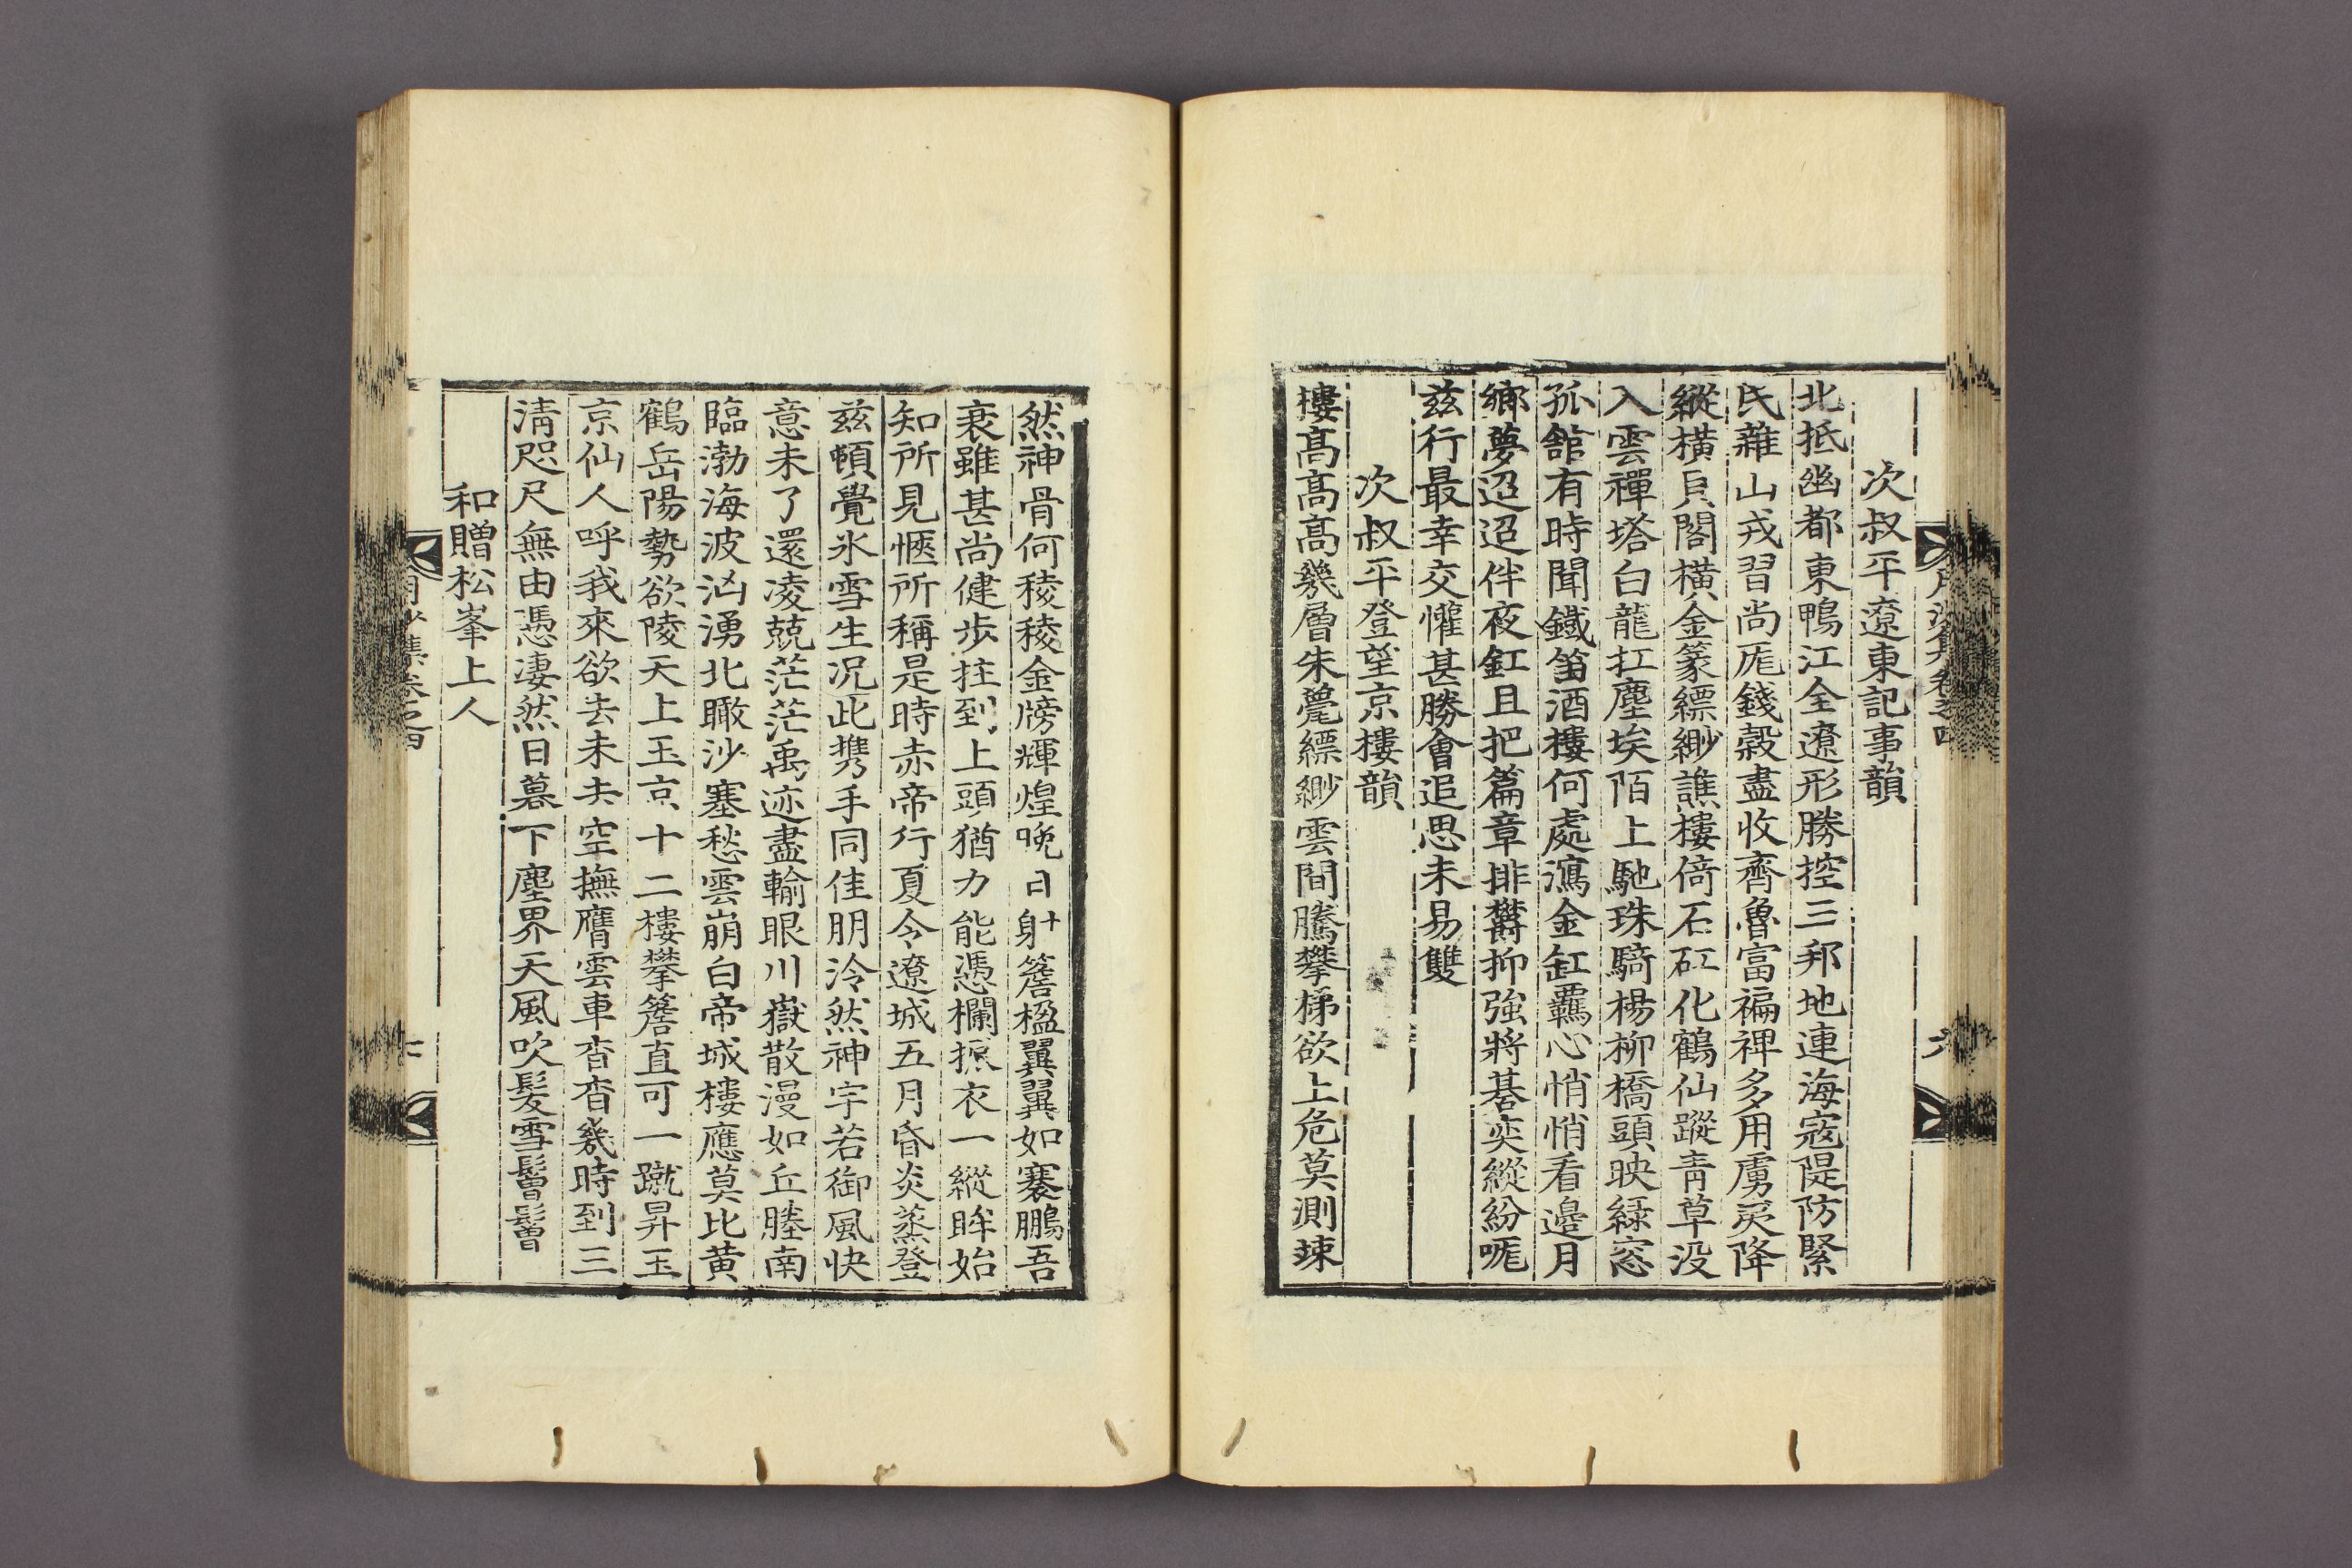 次叔平遼東記事韻
北抵幽都東鴨江全遼形勝控三邦地連海寇隄防緊
氏雜山戎習尚厖錢穀盡收齊魯富褊裨多用虜夷降
縱橫貝閣橫金篆縹緲譙樓倚石矼化鶴仙蹤靑草沒
入雲禪塔白龍扛塵埃陌上馳珠騎楊柳橋頭映綠窓
孤館有時聞鐵笛酒樓何處瀉金缸羈心悄悄看邊月
鄕夢迢迢伴夜釭且把篇章排欝抑强將碁奕縱紛哤
玆行最幸交懽甚勝會追思未易雙
次叔平登望京樓韻
樓高高高幾層朱甍縹緲雲間騰攀梯欲上危莫測竦
月沙集卷之四
六
然神骨何稜稜金牓輝煌晩日射簷楹翼翼如褰鵬吾
衰雖甚尙健步拄到上頭猶力能憑欄摭衣一縱眸始
知所見愜所稱是時赤帝行夏令遼城五月昏炎蒸登
玆頓覺氷雪生况此携手同佳朋泠然神宇若御風快
意未了還凌兢茫茫禹迹盡輸眼川嶽散漫如丘塍南
臨渤海波洶湧北瞰沙塞愁雲崩白帝城樓應莫比黄
鶴岳陽勢欲陵天上玉京十二樓攀簷直可一蹴昇玉
京仙人呼我來欲去未去空撫膺雲車杳杳幾時到三
淸咫尺無由憑凄然日暮下塵界天風吹髮雪鬙鬙
和贈松峯上人
月沙集卷之四
七